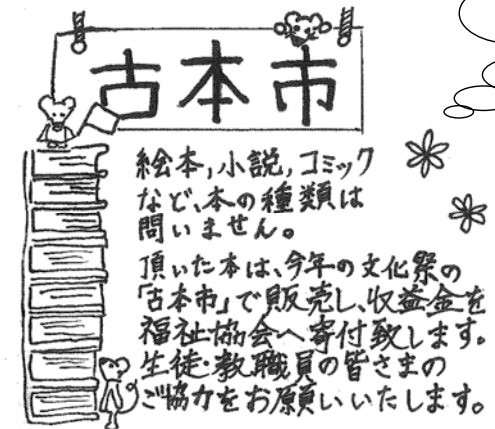 古本市
絵本,小説,コミック
など、本の種類は
問いません。
頂いた本は、今年の文化祭の
「古本市」で販売し、収益金を
福祉協会へ寄付致します。
生徒・教職員の皆さまの
ご協力をお願いいたします。